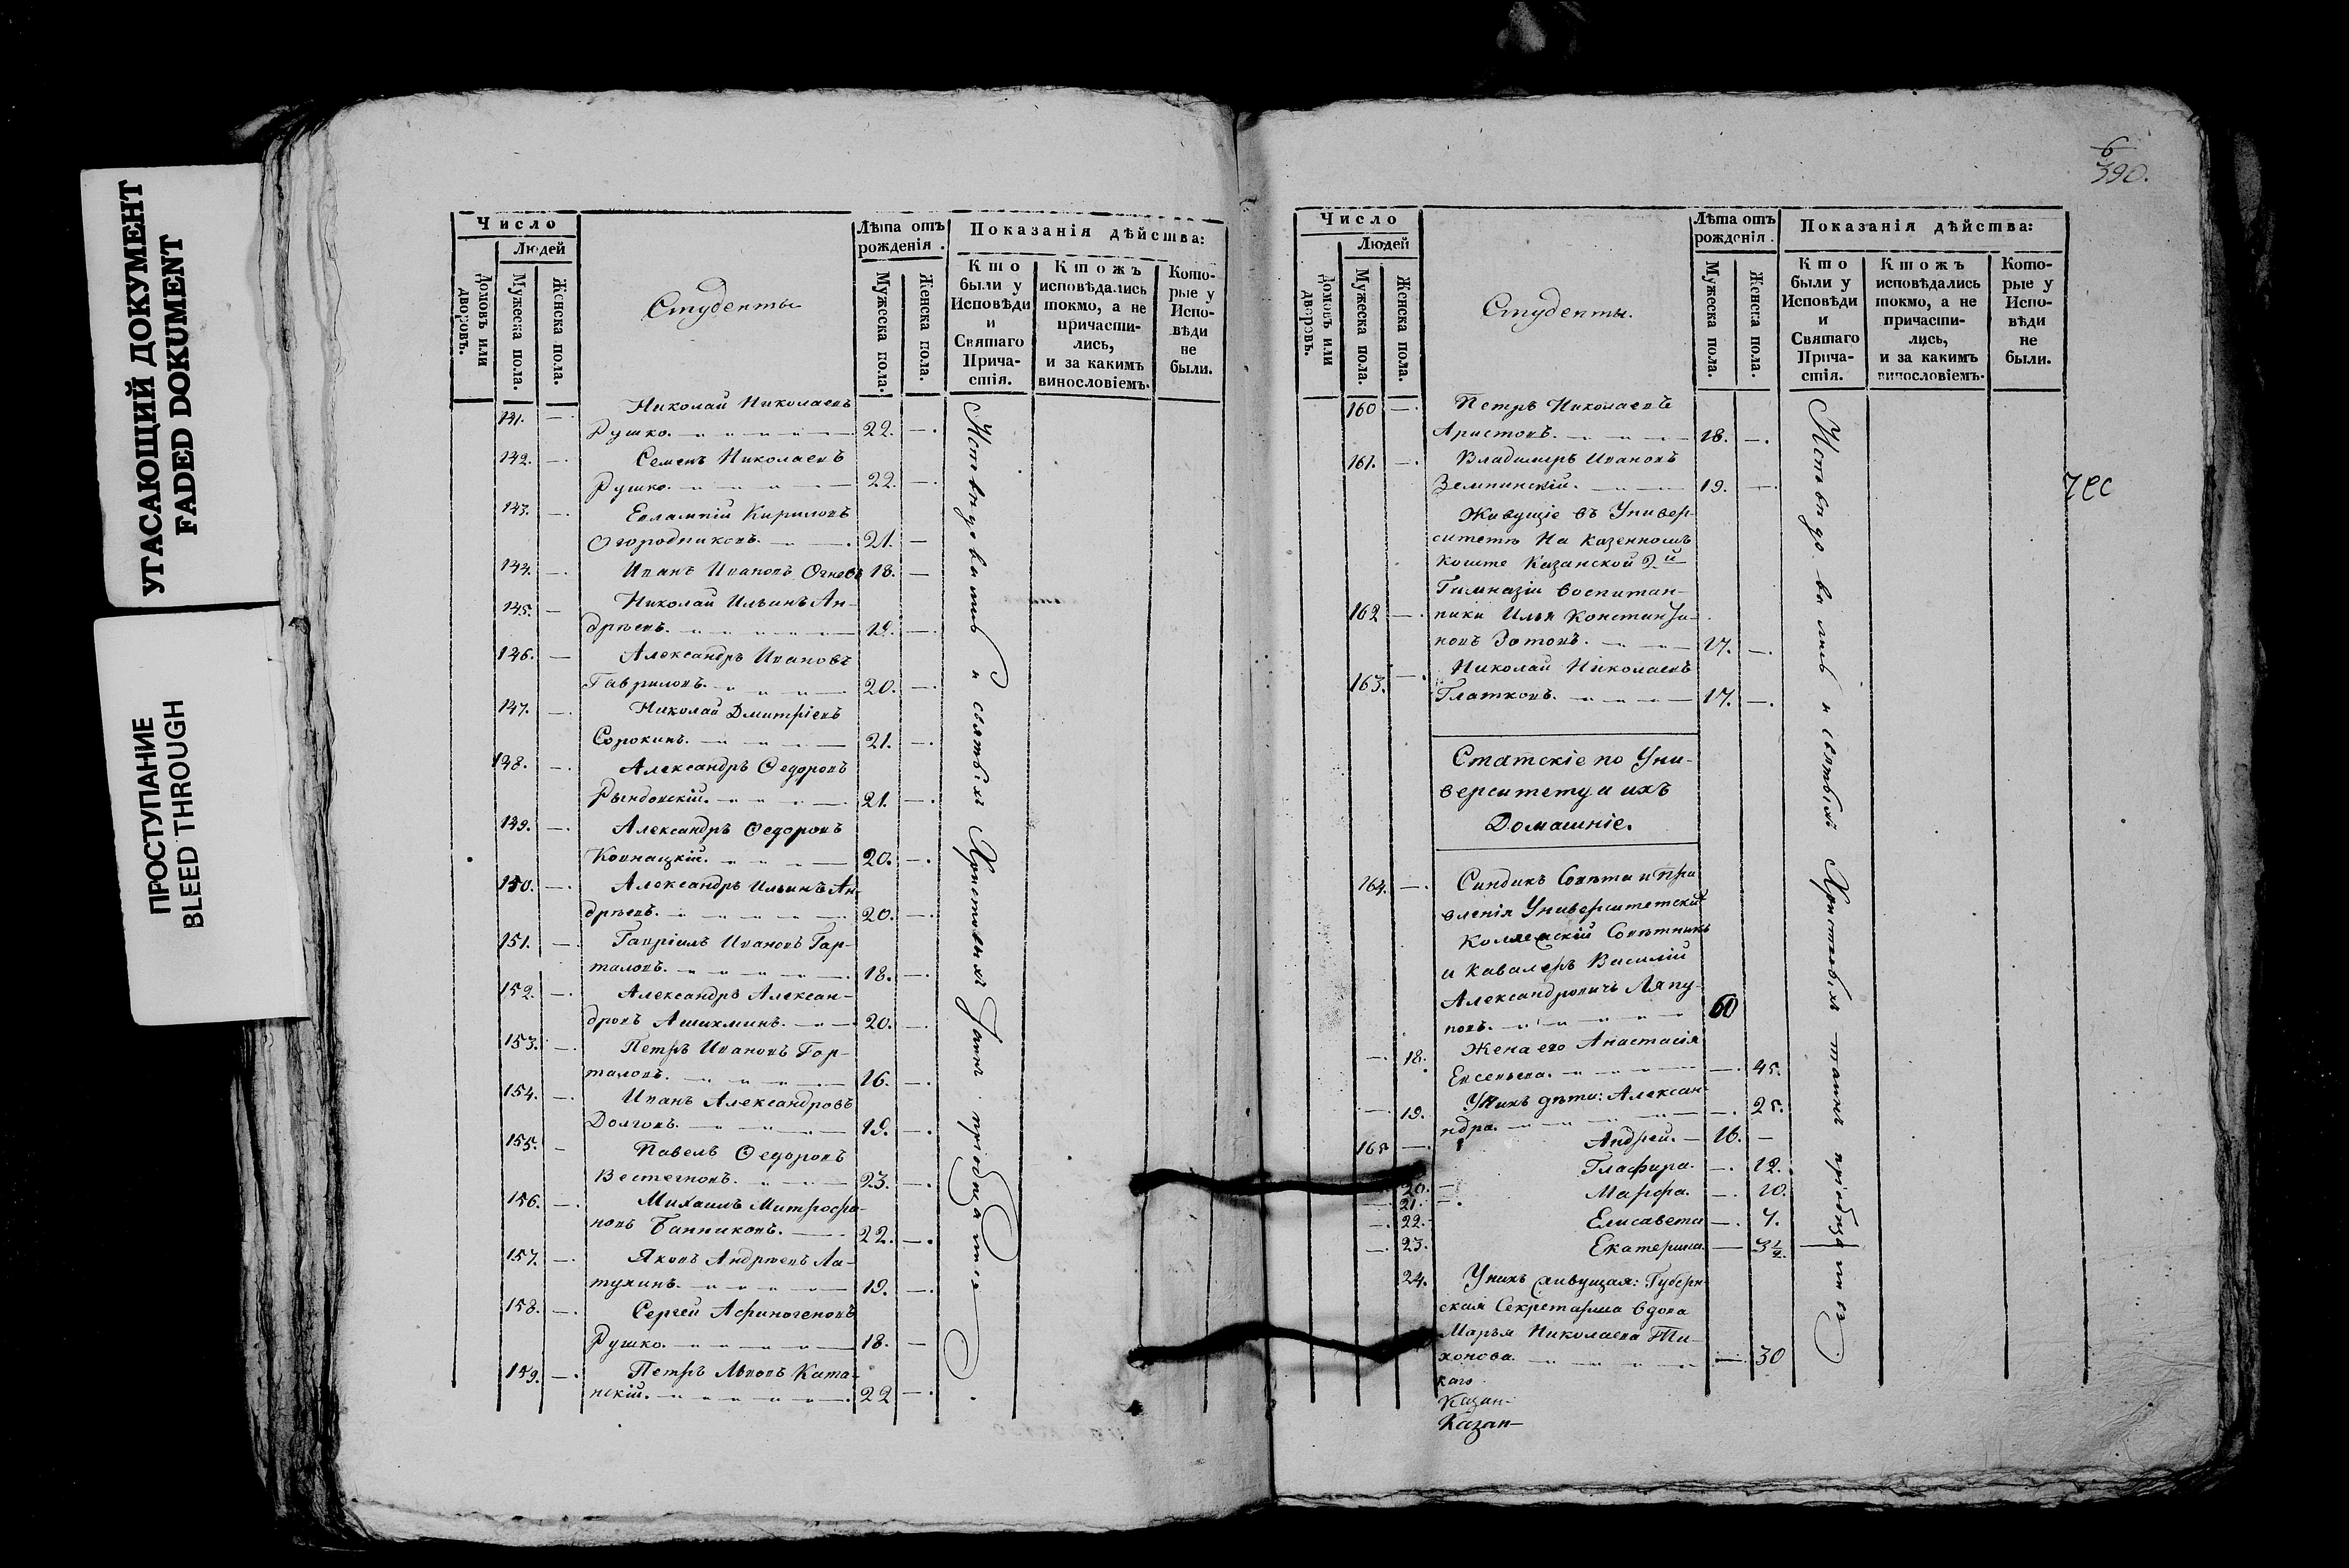 УГАСАЮЩИЙ ДОКУМЕНТ
FADED DOKUMENT
ПРОСТУПАНИЕ
BLEED THROUGH
Число
Людей
Домовъ или дворовъ.
Мужеска пола.
Женска пола.
Студенты
Лѣта отъ рожденія.
Мужеска пола.
Женска пола.
Показанія дѣйства:
Кто были у Исповѣди и Святаго Прича-стія.
Ктожъ исповѣдались токмо, а не причасти-лись, и за какимъ винословіемъ.
Кото-рые у Испо-вѣди не были.
141. — Николай Николаевъ
Рушко. 22. —
142. — Семенъ Николаевъ
Рушко. 22. —
143. — Евлампій Кириловъ
Огородниковъ. 21. —
144. — Иванъ Ивановъ Огневъ 18. —
145. — Николай Ильинъ Ан-
дрѣевъ. 19. —
146. — Александръ Ивановъ
Гавриловъ. 20. —
147. — Николай Дмитріевъ
Сорокинъ. 21. —
148. — Александръ Ѳедоровъ
Рындовскій. 21. —
149. — Александръ Ѳедоровъ
Ковнацкій. 20. —
150. — Александръ Ильинъ Ан-
дрѣевъ. 20. —
151. — Гавріилъ Ивановъ Гор-
таловъ. 18. —
152. — Александръ Алексан-
дровъ Ашихминъ. 20. —
153. — Петръ Ивановъ Гор-
таловъ. 16. —
154. — Иванъ Александровъ
Долговъ. 19. —
155. — Павелъ Ѳедоровъ
Вестеговъ. 23. —
156. — Михаилъ Митрофа-
новъ Банниковъ. 22. —
157. — Яковъ Андрѣевъ Ла-
тухинъ. 19. —
158. — Сергей Афиногеновъ
Рушко. 18. —
159. — Петръ Львовъ Ката-
нскій. 22 —
Исповѣдовались и святыхъ Христовыхъ Таинъ пріобщались.
6
390.
Число
Людей
Домовъ или дворовъ.
Мужеска пола.
Женска пола.
Студенты.
Лѣта отъ рожденія.
Мужеска пола.
Женска пола.
Показанія дѣйства:
Кто были у Исповѣди и Святаго Прича-стія.
Ктожъ исповѣдались токмо, а не причасти-лись, и за какимъ винословіемъ.
Кото-рые у Испо-вѣди не были.
160 — Петръ Николаевъ
Аристовъ. 18. —
161. — Владимиръ Ивановъ
Земпинскій. 19. —
Живущіе въ Универ-
ситетѣ На казенномъ
коште Казанской 2й
Гимназіи воспитан-
162 — ники Илья Константи-
новъ Зотовъ. 17. —
163. — Николай Николаевъ
Глатковъ. 17. —
Статскіе по Уни-
верситету и ихъ
Домашніе.
164. — Синдикъ Совѣта и Пра-
вленія Университетскій
Коллежскій Совѣтникъ
и кавалеръ Василій
Александровичъ Ляпу-
новъ. 60
— 18. Жена его Анастасія
Евсевьева. — 45.
— 19. У нихъ дѣти: Алексан-
ндра. — 25.
165 — Андрей. 16. —
20. Глафира. — 12.
21. Марфа. — 10.
— 22. Елисавета — 7.
— 23. Екатерина. — 3½.
24. У нихъ живущая: Губерн-
ская Секретарша вдова
Марья Николаева Ти-
хонова. — 30
каго
Казан-
Казан-
Исповѣдовались и святыхъ Христовыхъ таинъ пріобщались